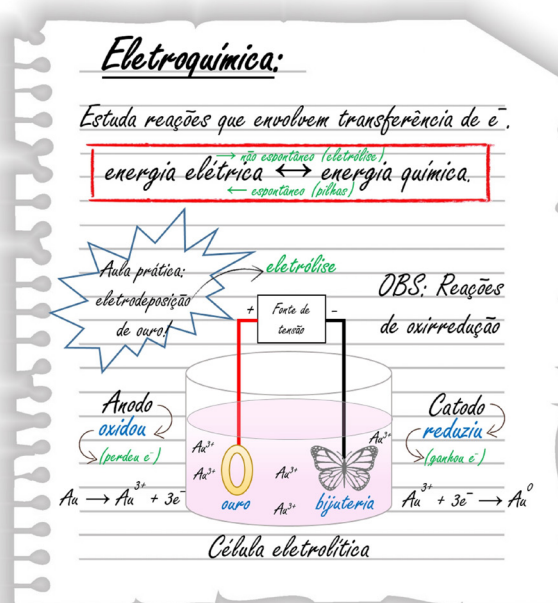 Eletroquímica:
Estuda reações que envolvem transferência de e⁻.
→ não espontâneo (eletrólise)
energia elétrica ↔ energia química.
← espontâneo (pilhas)
Aula prática:
eletrodeposição
de ouro!
eletrólise
OBS: Reações
de oxirredução
+ Fonte de −
tensão
Anodo
oxidou
(perdeu e⁻)
Au → Au³⁺ + 3e⁻
Catodo
reduziu
(ganhou e⁻)
Au³⁺ + 3e⁻ → Au⁰
Au³⁺
Au³⁺
Au³⁺
Au³⁺
Au³⁺
ouro
bijuteria
Célula eletrolítica